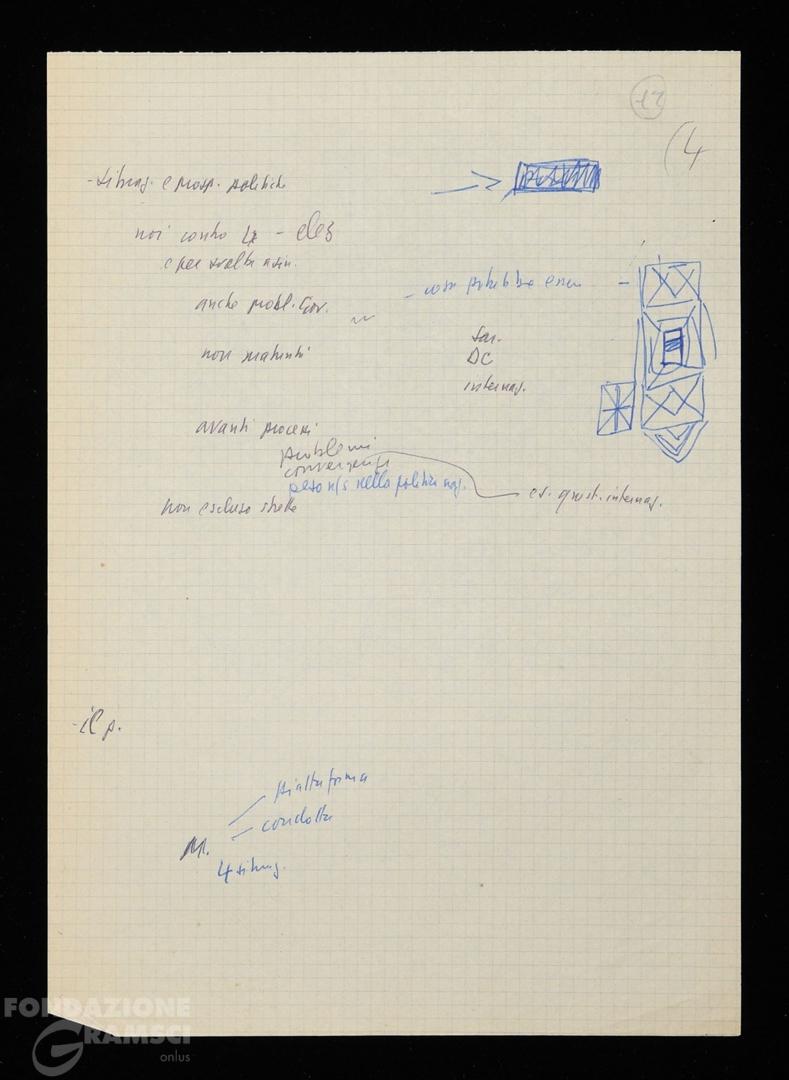 12
(4
- situaz. e prosp. politiche
noi contro 4 - elez
e per svolta a sin.
anche probl. Gov.
- cosa potrebbe essere -
non maturità
Soc.
DC
internaz.
avanti processi
problemi
convergenze
peso n/s nella politica naz.
es. quest. internaz.
non escluso strette
- il p.
piattaforma
condotta
M.
4 situaz.
FONDAZIONE
GRAMSCI
onlus